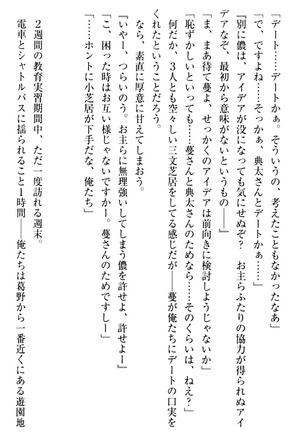 「デート……デートかぁ。そういうの、考えたこともなかったなあ」
「で、ですよね……そっかぁ、典太さんとデートかぁ……」
『別に儂は、アイデアが没になっても気にせぬぞ？ お主らふたりの協力が得られぬアイ
デアなぞ、最初から意味がないというもの――』
「ま、まあ待て蔓よ、せっかくのアイデアは前向きに検討しようじゃないか」
「恥ずかしいといっても……蔓さんと典太さんのためなら……そのくらいは、ねえ？」
何だか、３人とも空々しい三文芝居をしてる感じだが――蔓が俺たちにデートの口実を
くれたということだろう。
なら、素直に厚意に甘えてしまおう。
『いやー、つらいのう。お主らに無理強いしてしまう儂を許せよ、許せよー』
「こ、困った時はお互い様じゃないですかー。蔓さんのためですしー」
「……ホントに小芝居が下手だな、俺たち」
２週間の教育実習期間中、ただ一度訪れる週末。
電車とシャトルバスに揺られること１時間――俺たちは葛野から一番近くにある遊園地